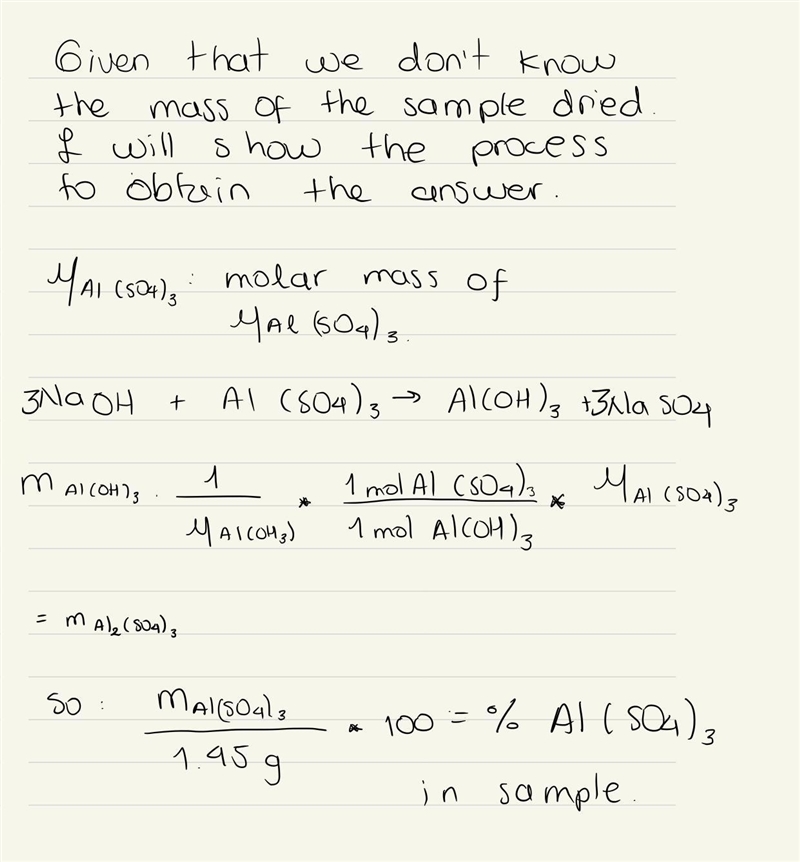 Given that we don't know
the mass of the sample dried.
I will show the process
to obtain the answer.
M Al (SO4)3 : molar mass of
M Al (SO4)3.
3NaOH + Al (SO4)3 → Al(OH)3 + 3Na SO4
m Al(OH)3 . 1 / M Al(OH3) * 1 mol Al (SO4)3 / 1 mol Al(OH)3 * M Al (SO4)3
= m Al2(SO4)3
SO : m Al(SO4)3 / 1.45 g * 100 = % Al (SO4)3
in sample.